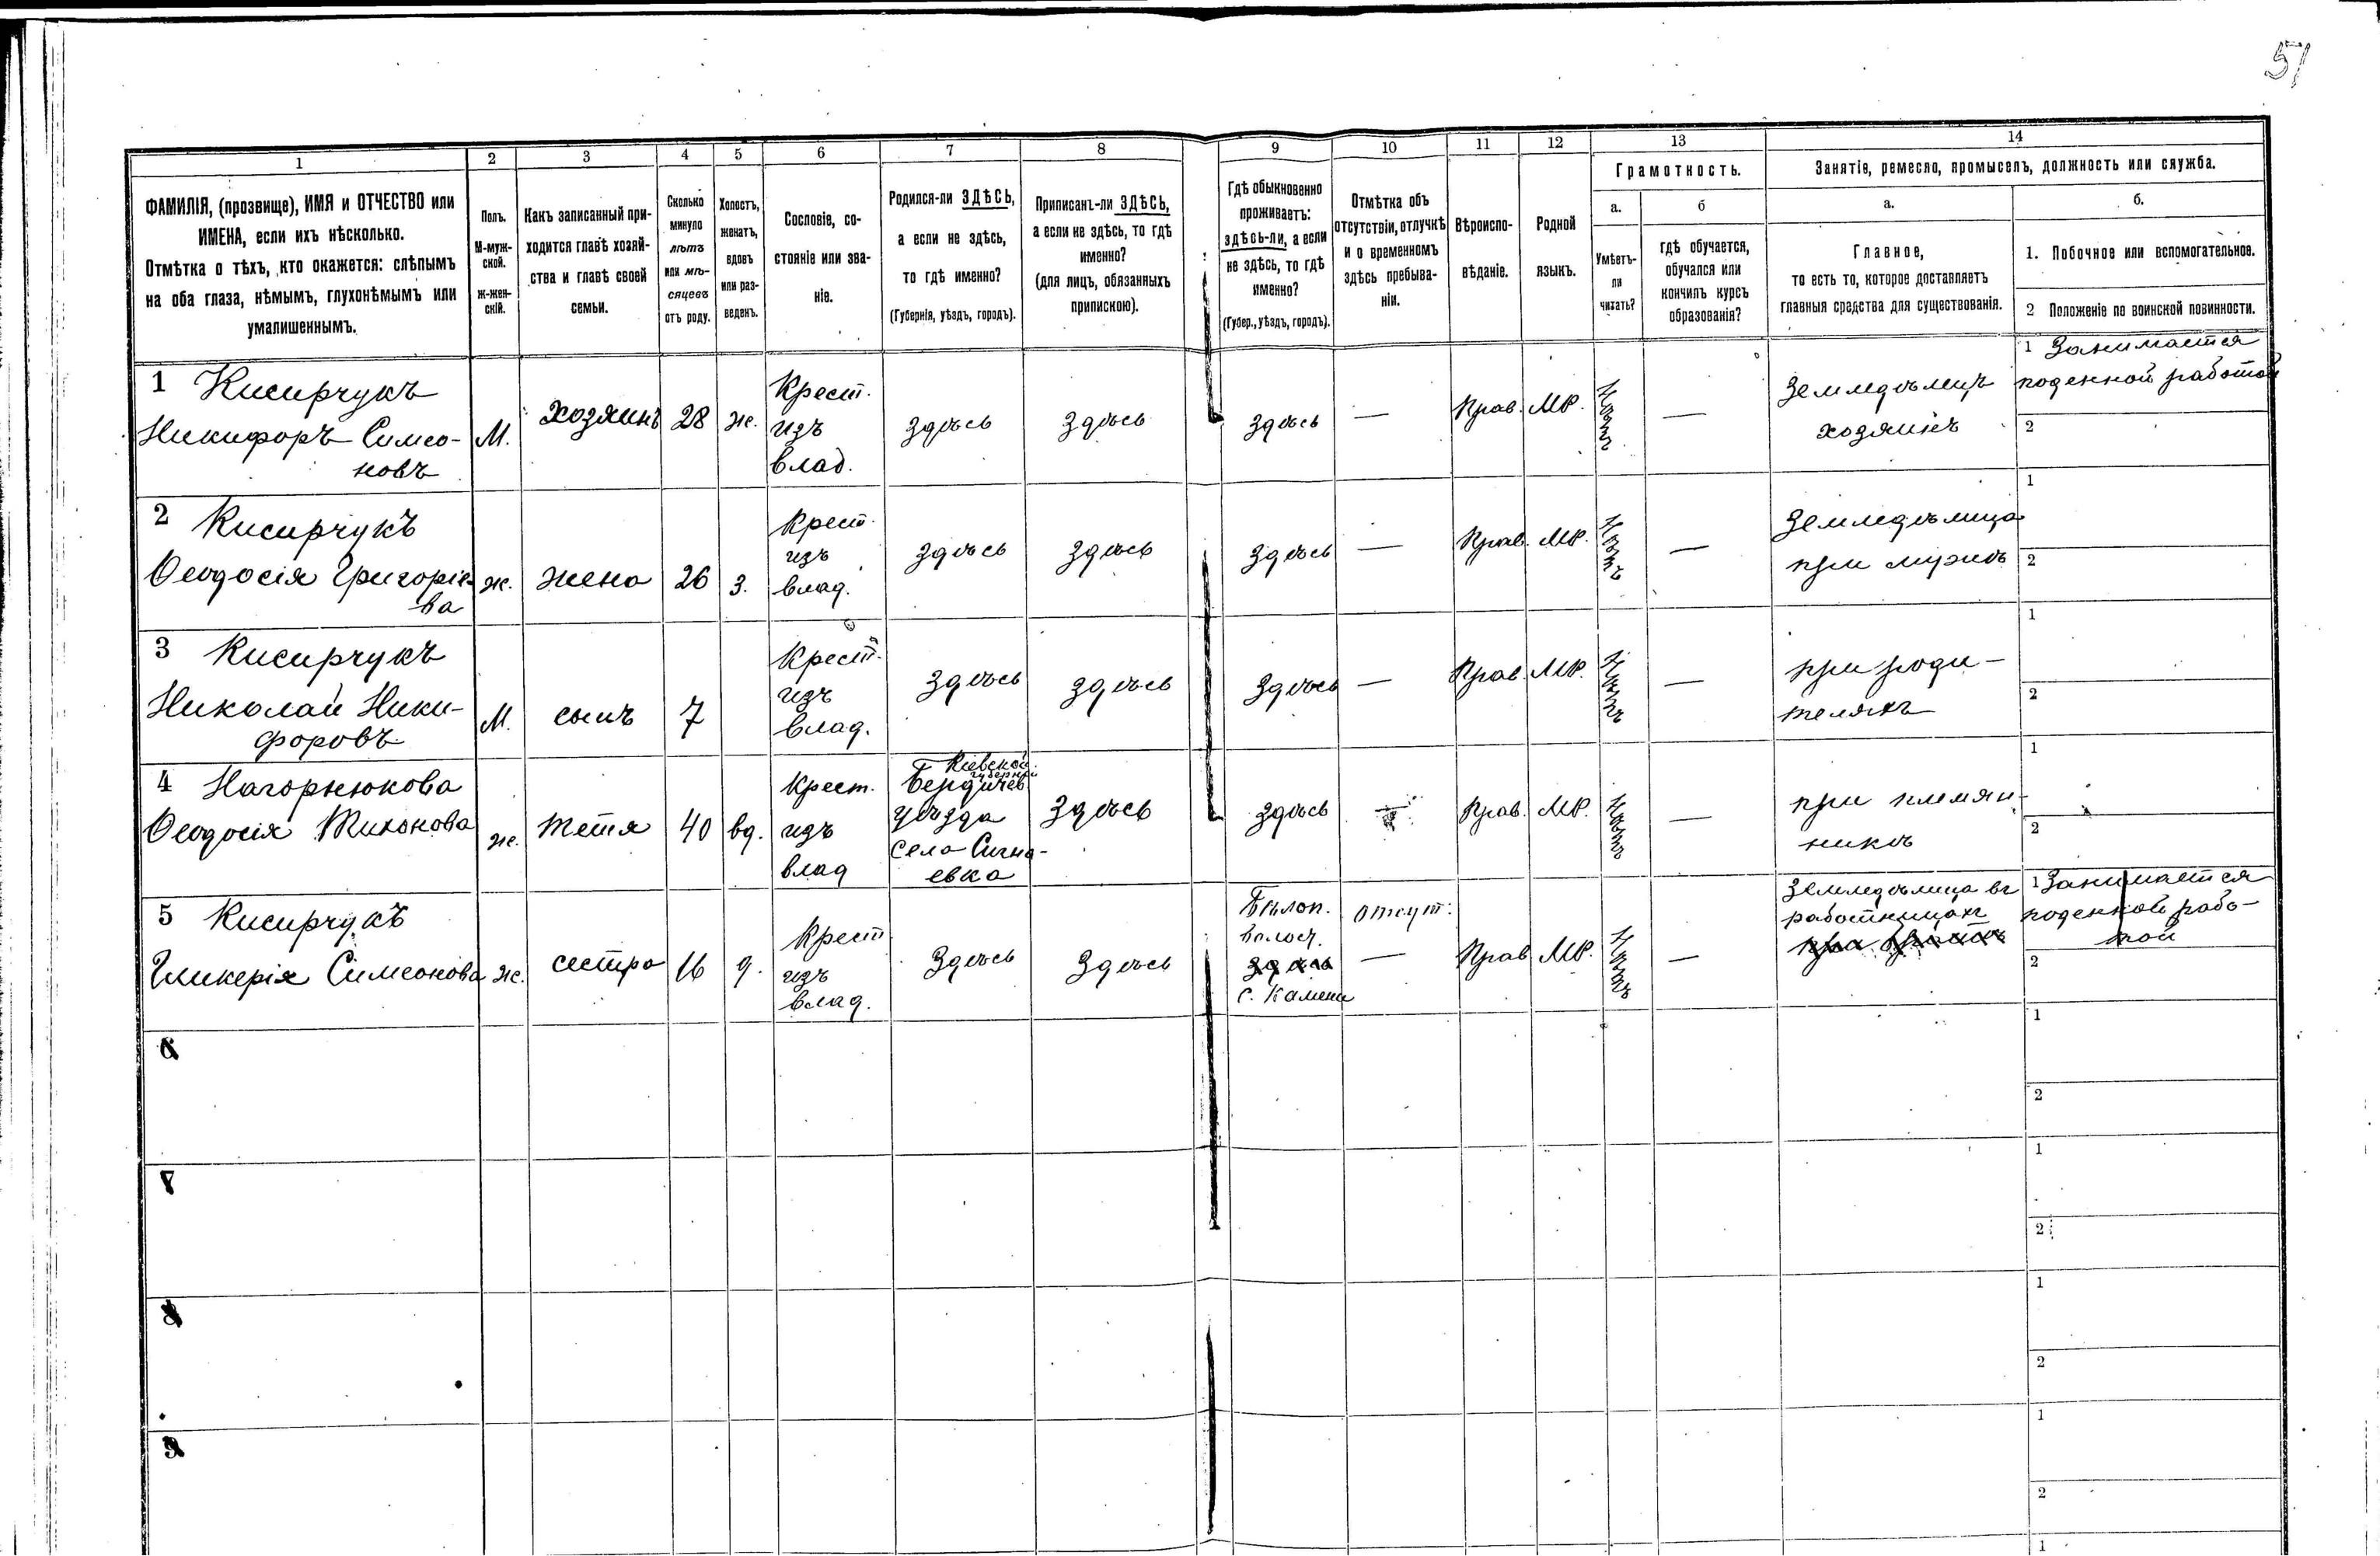 51
1 2 3 4 5 6 7 8 9 10 11 12 13 14
ФАМИЛІЯ, (прозвище), ИМЯ и ОТЧЕСТВО или
ИМЕНА, если ихъ нѣсколько.
Отмѣтка о тѣхъ, кто окажется: слѣпымъ
на оба глаза, нѣмымъ, глухонѣмымъ или
умалишеннымъ.
Полъ.
М-муж-
ской.
ж-жен-
скій.
Какъ записанный при-
ходится главѣ хозяй-
ства и главѣ своей
семьи.
Сколько
минуло
лѣтъ
или мѣ-
сяцевъ
отъ роду.
Холостъ,
женатъ,
вдовъ
или раз-
веденъ.
Сословіе, со-
стояніе или зва-
ніе.
Родился-ли ЗДѢСЬ,
а если не здѣсь,
то гдѣ именно?
(Губернія, уѣздъ, городъ).
Приписанъ-ли ЗДѢСЬ,
а если не здѣсь, то гдѣ
именно?
(для лицъ, обязанныхъ
припискою).
Гдѣ обыкновенно
проживаетъ:
здѣсь-ли, а если
не здѣсь, то гдѣ
именно?
(Губер., уѣздъ, городъ).
Отмѣтка объ
отсутствіи, отлучкѣ
и о временномъ
здѣсь пребыва-
ніи.
Вѣроиспо-
вѣданіе.
Родной
языкъ.
Грамотность.
а.
Умѣетъ-
ли
читать?
б
гдѣ обучается,
обучался или
кончилъ курсъ
образованія?
Занятіе, ремесло, промыселъ, должность или служба.
а.
Главное,
то есть то, которое доставляетъ
главныя средства для существованія.
б.
1. Побочное или вспомогательное.
2 Положеніе по воинской повинности.
1 Кисирчукъ
Никифоръ Симео-
новъ
М.
Хозяинъ
28
ж.
Крест.
изъ
влад.
здѣсь
здѣсь
здѣсь
—
Прав.
МР.
Нѣтъ
—
Земледѣлецъ
хозяинъ
1 Занимается
поденной работой
2
2 Кисирчукъ
Ѳеодосія Григоріе-
ва
ж.
жена
26
з.
Крест.
изъ
влад.
здѣсь
здѣсь
здѣсь
—
Прав.
МР.
Нѣтъ
—
Земледѣлица
при мужѣ
1
2
3 Кисирчукъ
Николай Ники-
форовъ
М.
сынъ
7
Крест.
изъ
влад.
здѣсь
здѣсь
здѣсь
—
Прав.
МР.
Нѣтъ
—
при роди-
теляхъ
1
2
4 Нагорнюкова
Ѳеодосія Тихонова
ж.
тетя
40
вд.
Крест.
изъ
влад
Кіевской
губерніи
Бердичев
уѣзда
села Сигна-
евка
здѣсь
здѣсь
—
Прав.
МР.
Нѣтъ
—
при племян-
никѣ
1
2
5 Кисирчукъ
Гликерія Симеонова
ж.
сестра
16
д.
Крест
изъ
влад.
Здѣсь
Здѣсь
Бѣлоп.
волост.
здѣсь
с. Камени
отсут.
—
Прав
МР.
Нѣтъ
—
Земледѣлица въ
работницахъ
при братѣ
1 Занимается
поденной рабо-
той
2
6
1
2
7
1
2
8
1
2
9
1
2
1